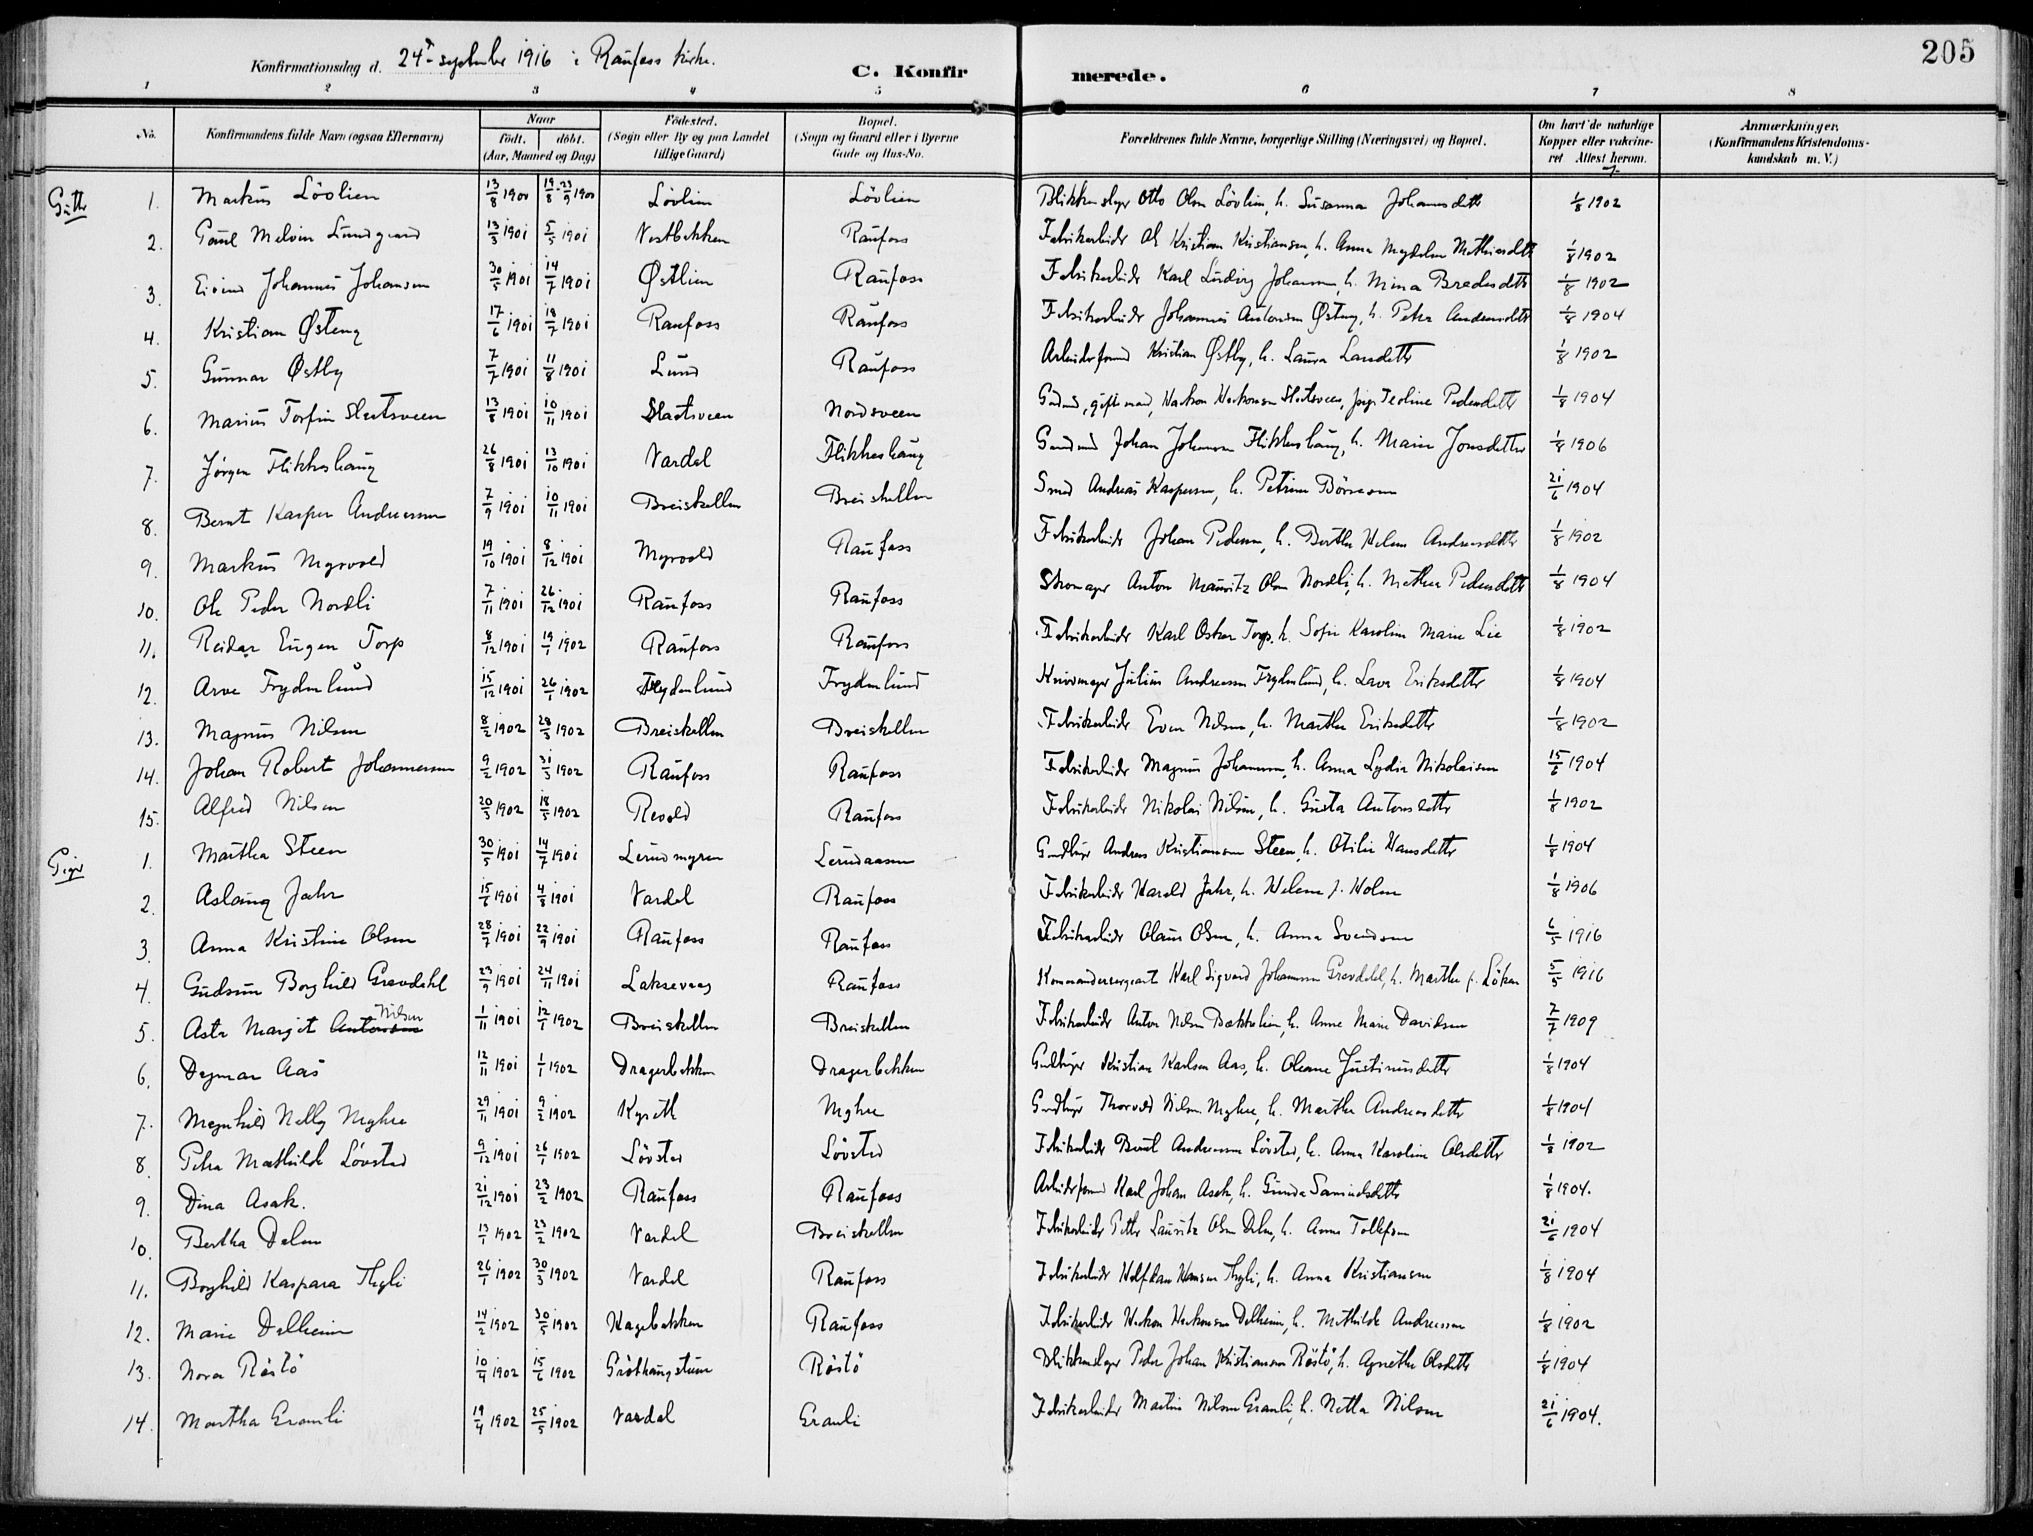 205
Konfirmationsdag d. 24de september 1916 i Raufoss kirke.
C. Konfirmerede.
1 2 3 4 5 6 7 8
No. Konfirmandens fulde Navn (ogsaa Efternavn) Naar født. døbt. (Aar, Maaned og Dag) Fødested. (Sogn eller By og paa Landet tillige Gaard) Bopæl. (Sogn og Gaard eller i Byerne Gade og Hus-No. Forældrenes fulde Navne, borgerlige Stilling (Næringsvei) og Bopæl. Om havt de naturlige Kopper eller vakcineret Attest herom. Anmærkninger, (Konfirmandens Kristendomskundskab m. V.)
Gutter
1. Markus Lövlien 13/8 1900 19/8 - 23/9 1900 Lövlien Lövlien Blikkenslager Otto Olsen Lövlien, h. Susanna Johannesdatter 1/8 1902
2. Paul Melvin Lundgaard 13/3 1901 5/5 1901 Vestbakken Raufoss Fabrikarbeider Ole Kristian Kristiansen, h. Anna Magdalene Mathiasdatter 1/8 1902
3. Eivind Johannes Johansen 30/5 1901 14/7 1901 Østlien Raufoss Fabrikarbeider Karl Ludvig Johansen, h. Mina Bredesdatter 1/8 1902
4. Kristian Østeng 17/6 1901 18/7 1901 Raufoss Raufoss Fabrikarbeider Johannes Antonsen Østeng, h. Petra Andersdatter 1/8 1904
5. Gunnar Østby 7/7 1901 11/8 1901 Lund Raufoss Arbeidsformand Kristian Østby, h. Laura Larsdatter 1/8 1902
6. Marius Torfin Slaatsveen 13/8 1901 10/11 1901 Slaatsveen Nordsveen Gaardmd, gift mand, Haakon Haakonsen Slaatsveen, pige Teoline Pedersdatter 1/8 1904
7. Jørgen Flikkeshaug 26/8 1901 13/10 1901 Vardal Flikkeshaug Gaardmd Johan Johansen Flikkeshaug, h. Marie Jonsdatter 1/8 1906
8. Bernt Kasper Andreassen 7/9 1901 10/11 1901 Breiskallen Breiskallen Smed Andreas Kaspersen, h. Petrine Börresen 21/6 1904
9. Markus Myrvold 19/10 1901 8/12 1901 Myrvold Raufoss Fabrikarbeider Johan Pedersen, h. Berthe Helene Andreasdatter 1/8 1902
10. Ole Peder Nordli 7/11 1901 26/12 1901 Raufoss Raufoss Skomager Anton Mauritz Olsen Nordli, h. Mathea Pedersdatter 1/8 1904
11. Reidar Eugen Torp 8/12 1901 19/1 1902 Raufoss Raufoss Fabrikarbeider Karl Oskar Torp, h. Sofie Karoline Marie Lie 1/8 1902
12. Arve Frydenlund 15/12 1901 26/1 1902 Frydenlund Frydenlund Julius Andreassen Frydenlund, h. Lava Eriksdatter 1/8 1904
13. Magnus Nilsen 8/2 1902 28/3 1902 Breiskallen Breiskallen Fabrikarbeider Even Nilsen, h. Marthe Eriksdatter 1/8 1902
14. Johan Robert Johannessen 9/2 1902 31/3 1902 Raufoss Raufoss Fabrikarbeider Magnus Johannesen, h. Anna Lydia Nikolaisen 15/6 1904
15. Alfred Nilsen 20/3 1902 18/5 1902 Revold Raufoss Fabrikarbeider Nikolai Nilsen, h. Gusta Antonsdatter 1/8 1902
Piger
1. Martha Steen 30/5 1901 14/7 1901 Lerudmyren Lerudaasen Andreas Kristiansen Steen, h. Otilie Hansdatter 1/8 1904
2. Aslaug Jahr 15/6 1901 4/8 1901 Vardal Raufoss Fabrikarbeider Harald Jahr, h. Helene f. Holm 1/8 1906
3. Anna Kristine Olsen 28/7 1901 22/9 1901 Raufoss Raufoss Fabrikarbeider Olaus Olsen, h. Anna Svendsen 6/5 1916
4. Gudrun Borghild Grevdahl 23/9 1901 24/11 1901 Raufoss Kommandersergeant Karl Sigvard Johannsen Grevdahl, h. Marthe f. Löken 5/5 1916
5. Asta Margit Antonsen Nilsen 1/11 1901 12/1 1902 Breiskallen Breiskallen Fabrikarbeider Anton Nilsen Bækkelien, h. Anne Marie Davidsen 7/7 1909
6. Dagmar Aas 12/11 1901 1/1 1902 Dragerbakken Dragerbakken Kristian Karlsen Aas, h. Oleane Justinusdatter 1/8 1904
7. Magnhild Nelly Myhre 29/11 1901 9/2 1902 Kyseth Myhre Thorvald Nilsen Myhre, h. Marthe Andreasdatter 1/8 1904
8. Petra Mathilde Lövstad 9/12 1901 26/1 1902 Lövstad Lövstad Fabrikarbeider Bernt Andreassen Lövstad, h. Anna Karoline Olsdatter 1/8 1902
9. Dina Asak. 21/12 1901 23/2 1902 Raufoss Raufoss Arbeidsformand Karl Johan Asak, h. Gunda Samuelsdatter 1/8 1904.
10. Bertha Dalen 13/1 1902 23/2 1902 Vardal Breiskallen Fabrikarbeider Petter Lauritz Olsen Dalen, h. Anne Tollefsen 21/6 1904
11. Borghild Kaspara Thyli 26/1 1902 30/3 1902 Vardal Raufoss Fabrikarbeider Halfdan Hansen Thyli, h. Anna Kristiansen 1/8 1904
12. Marie Dalheim 14/2 1902 30/5 1902 Hagebakken Raufoss Fabrikarbeider Haakon Haakonsen Dalheim, h. Mathilde Andreassen 1/8 1902
13. Nora Röstö 10/4 1902 15/6 1902 Gröthaugstuen Röstö Blikkenslager Peder Johan Kristiansen Röstö, h. Agnethe Olsdatter 1/8 1904
14. Martha Granli 19/4 1902 25/5 1902 Vardal Granli Fabrikarbeider Martin Nilsen Granli, h. Netta Nilsen 21/6 1904.